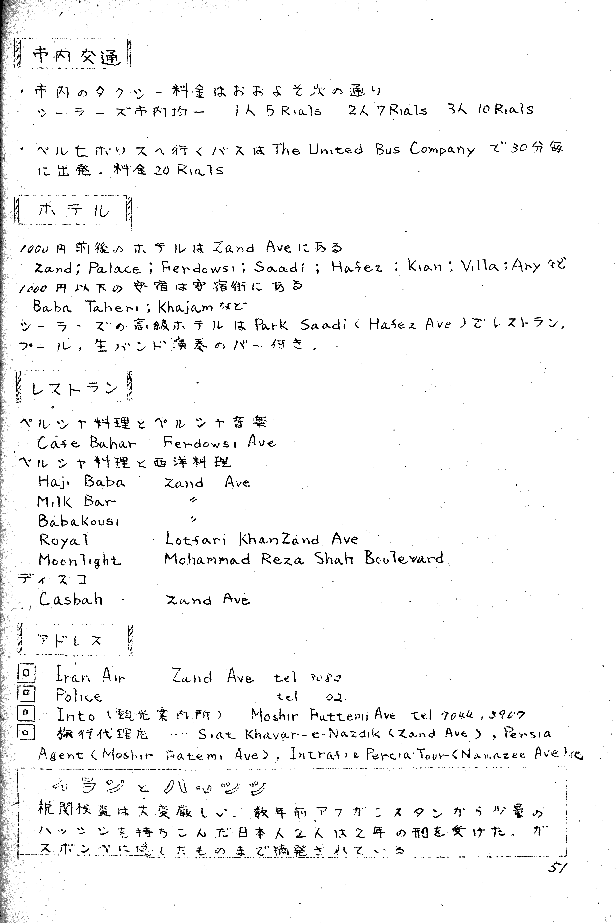 市内交通
・市内のタクシー料金はおおよそ次の通り
シーラーズ市内均一 1人 5 Rials 2人 7 Rials 3人 10 Rials
・ペルセポリスへ行くバスは The United Bus Company で 30分毎
に出発。料金 20 Rials
ホテル
1000円前後のホテルは Zand Ave にある
Zand; Palace; Ferdowsi; Saadi; Hafez; Kian; Villa; Any など
1000円以下の安宿は安宿街にある
Baba Taheri; Khajam など
シーラーズの高級ホテルは Park Saadi (Hafez Ave) でレストラン,
プール,生バンド演奏のバー付き.
レストラン
ペルシャ料理とペルシャ音楽
Cafe Bahar Ferdowsi Ave
ペルシャ料理と西洋料理
Haji Baba Zand Ave
Milk Bar 〃
Babakousi 〃
Royal Lotfari Khan Zand Ave
Moonlight Mohammad Reza Shah Boulevard
ディスコ
Casbah Zand Ave
アドレス
Iran Air Zand Ave tel
Police tel 02
Into (観光案内所) Moshir Futtemi Ave tel
旅行代理店 … Siat Khavar-e-Nazdik (Zand Ave), Persia
Agent (Moshir Fatemi Ave), Percia Tour (Namazee Ave)
イランとハッシッシ
税関検査は大変厳しい。数年前アフガニスタンから少量の
ハッシシを持ちこんだ日本人2人は2年の刑を受けた。ガ
スボンベに隠したものまで摘発されている
51